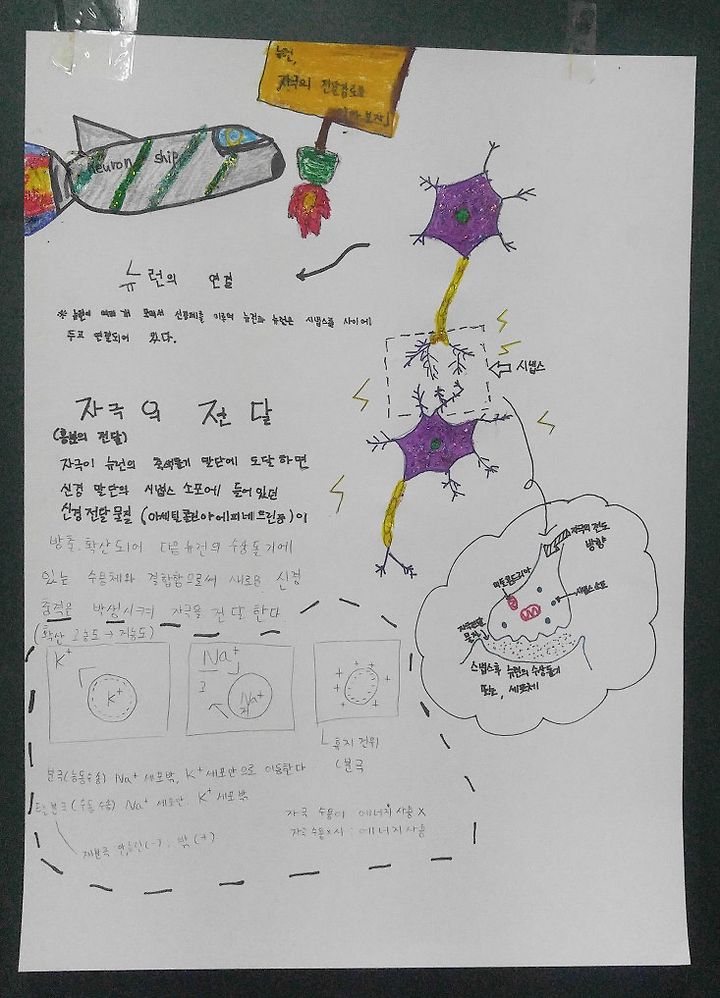 뉴런,
자극의 전달경로를
neuron ship
뉴런의 연결
※ 뉴런이 여러 개 모여서 신경계를 이루며 뉴런과 뉴런은 시냅스를 사이에
두고 연결되어 있다.
시냅스
자극의 전달
(흥분의 전달)
자극이 뉴런의 축색돌기 말단에 도달하면
신경 말단의 시냅스 소포에 들어있던
신경전달물질 (아세틸콜린아에피네프린등)이
방출.확산되어 다음뉴런의 수상돌기에
있는 수용체와 결합함으로써 새로운 신경
충격을 발생시켜 자극을 전달한다
(확산 고농도→저농도)
자극의 전도
방향
미토콘드리아
시냅스 소포
물질
뉴런의 수상돌기
또는, 세포체
K⁺
K⁺
Na⁺
Na⁺
휴지 전위
(분극
분극(능동수송) Na⁺ 세포밖, K⁺ 세포안으로 이동한다
탈분극 (수동수송) Na⁺ 세포안. K⁺ 세포밖
자극 수용시 : 에너지사용 X
자극수용x시 : 에너지사용
재분극 (-), 밖(+)